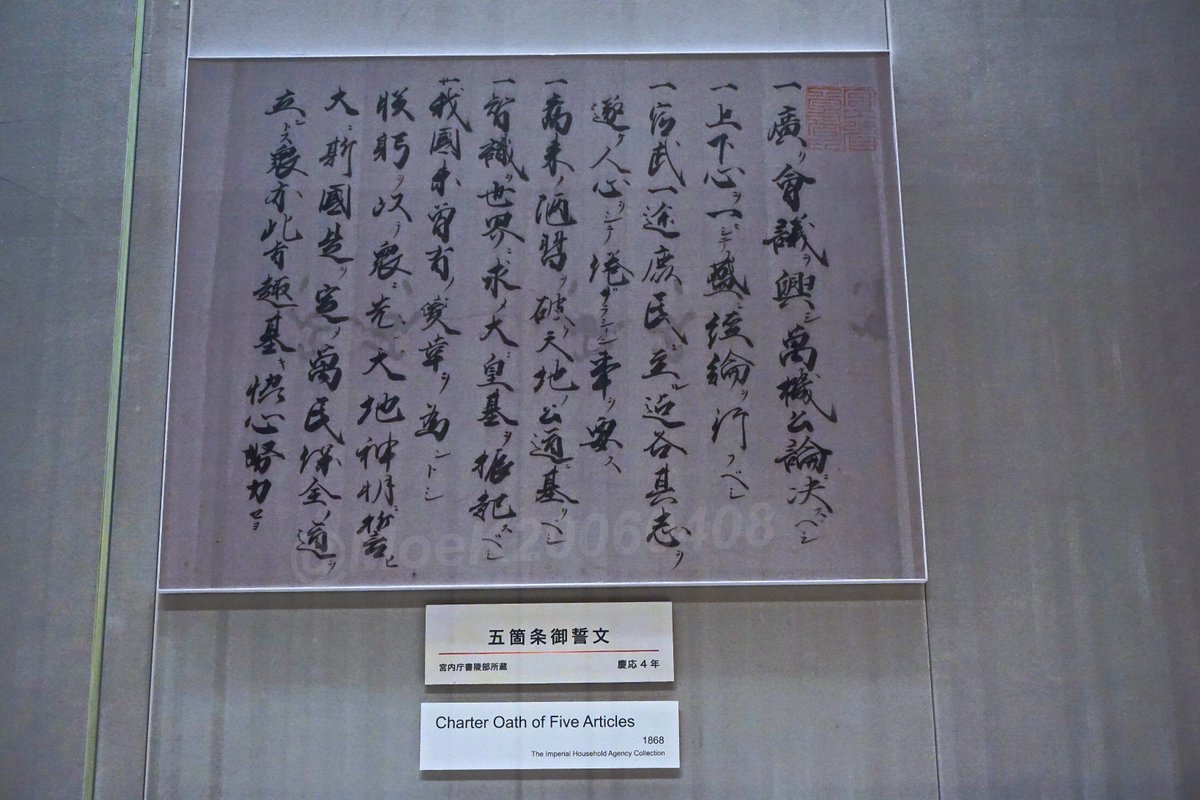 一廣ク會議ヲ興シ萬機公論ニ決スベシ
一上下心ヲ一ニシテ盛ニ経綸ヲ行フベシ
一官武一途庶民ニ至ル迄各其志ヲ
遂ケ人心ヲシテ倦ザラシメン事ヲ要ス
一舊来ノ陋習ヲ破リ天地ノ公道ニ基クベシ
一智識ヲ世界ニ求メ大ニ皇基ヲ振起スベシ
我國未曾有ノ變革ヲ為ントシ
朕躬ヲ以テ衆ニ先ジ天地神明ニ誓ヒ
大ニ斯國是ヲ定メ萬民保全ノ道ヲ
立ントス衆亦此旨趣ニ基キ協心努力セヨ
五箇条御誓文
宮内庁書陵部所蔵 慶応4年
Charter Oath of Five Articles
1868
The Imperial Household Agency Collection